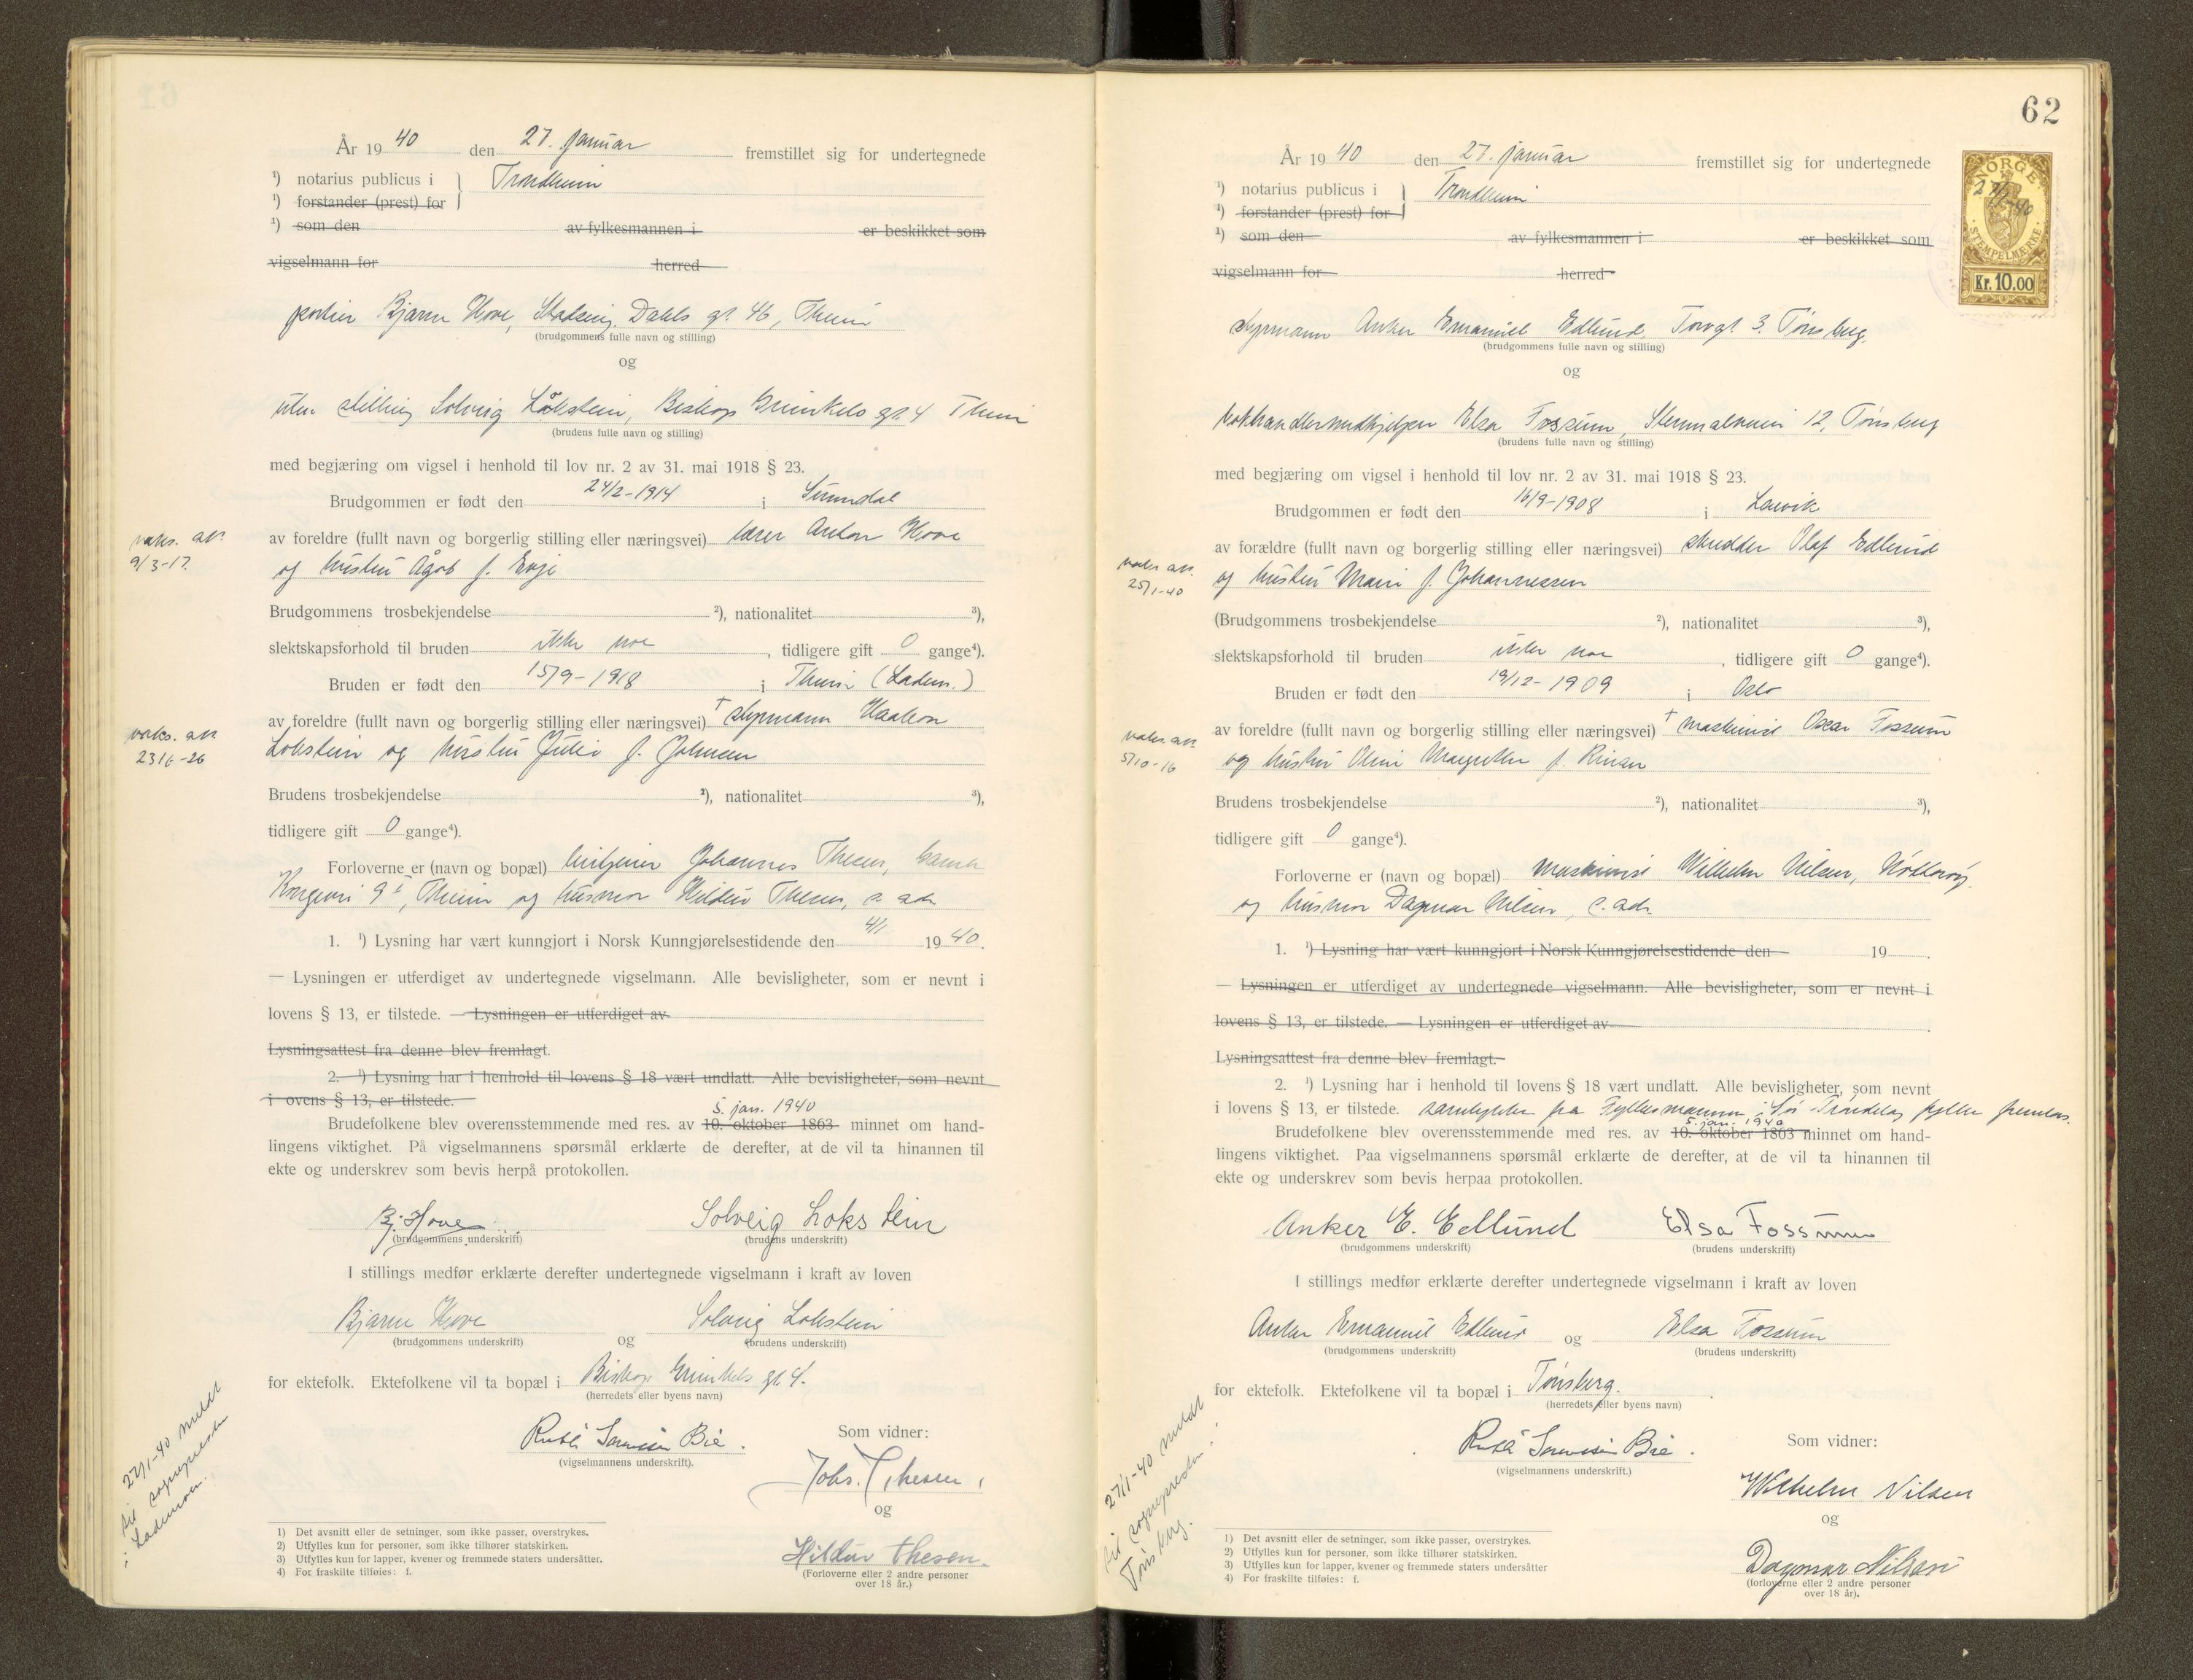 År 1940 den 27. januar fremstillet sig for undertegnede
¹) notarius publicus i } Trondheim
¹) forstander (prest) for
¹) som den av fylkesmannen i er beskikket som
vigselmann for herred
portier Bjarne Hove, Stadsing. Dahls gt. 46, Theim
(brudgommens fulle navn og stilling)
og
uten stilling Solveig Lökstein, Biskop Grimkels gt. 4 Theim
(brudens fulle navn og stilling)
med begjæring om vigsel i henhold til lov nr. 2 av 31. mai 1918 § 23.
Brudgommen er født den 24/2-1914 i Sunndal
vaks. att. 9/3-17.
av foreldre (fullt navn og borgerlig stilling eller næringsvei) lærer Anton Hove
og hustru Ågot f. Evje
Brudgommens trosbekjendelse ²), nationalitet ³),
slektskapsforhold til bruden ikke noe, tidligere gift 0 gange⁴).
Bruden er født den 15/9-1918 i Theim (Ladem.)
vaks. att. 23/6-26
av foreldre (fullt navn og borgerlig stilling eller næringsvei) † styrmann Haakon
Lokstein og hustru Julie f. Johnsen
Brudens trosbekjendelse ²), nationalitet ³),
tidligere gift 0 gange⁴).
Forloverne er (navn og bopæl) Johannes Thesen, Gamle
Kongevei 9 I, Theim og husmor Hildur Thesen, s. adr.
1. ¹) Lysning har vært kunngjort i Norsk Kunngjørelsestidende den 4/1 1940.
— Lysningen er utferdiget av undertegnede vigselmann. Alle bevisligheter, som er nevnt i
lovens § 13, er tilstede. — Lysningen er utferdiget av
Lysningsattest fra denne blev fremlagt.
2. ¹) Lysning har i henhold til lovens § 18 vært undlatt. Alle bevisligheter, som nevnt
i ovens § 13, er tilstede.
5. jan. 1940
Brudefolkene blev overensstemmende med res. av 10. oktober 1863 minnet om hand-
lingens viktighet. På vigselmannens spørsmål erklærte de derefter, at de vil ta hinannen til
ekte og underskrev som bevis herpå protokollen.
Bj. Hove Solveig Lokstein
(brudgommens underskrift) (brudens underskrift)
I stillings medfør erklærte derefter undertegnede vigselmann i kraft av loven
Bjarne Hove og Solveig Lokstein
(brudgommens underskrift) (brudens underskrift)
for ektefolk. Ektefolkene vil ta bopæl i Biskop Grimkels gt. 4.
(herredets eller byens navn)
27/1-40 meldt
til sogneprest
i Lademoen.
Som vidner:
(vigselmannens underskrift).
Johs. Thesen
og
Hildur Thesen.
(Forloverne eller 2 andre personer
over 18 år.)
1) Det avsnitt eller de setninger, som ikke passer, overstrykes.
2) Utfylles kun for personer, som ikke tilhører statskirken.
3) Utfylles kun for lapper, kvener og fremmede staters undersåtter.
4) For fraskilte tilføies: f.
62
NORGE
27/1-40
STEMPELMERKE
Kr. 10.00
År 1940 den 27. januar fremstillet sig for undertegnede
¹) notarius publicus i } Trondheim
¹) forstander (prest) for
¹) som den av fylkesmannen i er beskikket som
vigselmann for herred
styrmann Anker Emanuel Edlund, Torvgt 3. Tønsberg.
(brudgommens fulle navn og stilling)
og
bokhandlermedhjelper Elsa Fossum, 12, Tønsberg
(brudens fulle navn og stilling)
med begjæring om vigsel i henhold til lov nr. 2 av 31. mai 1918 § 23.
Brudgommen er født den 16/9-1908 i Larvik
vaks. att. 25/1-40
av forældre (fullt navn og borgerlig stilling eller næringsvei) skredder Olaf Edlund
og hustru Marie f. Johannessen
(Brudgommens trosbekjendelse ²), nationalitet ³),
slektskapsforhold til bruden ikke noe, tidligere gift 0 gange⁴).
Bruden er født den 19/12-1909 i Oslo
vaks. att. 5/10-16
av foreldre (fullt navn og borgerlig stilling eller næringsvei) † maskinist Oscar Fossum
og hustru Oline Margrethe f.
Brudens trosbekjendelse ²), nationalitet ³),
tidligere gift 0 gange⁴).
Forloverne er (navn og bopæl) maskinist Wilhelm Nilsen, Nötteröy.
og husmor Dagmar Nilsen, s. adr.
1. ¹) Lysning har vært kunngjort i Norsk Kunngjørelsestidende den 19 .
— Lysningen er utferdiget av undertegnede vigselmann. Alle bevisligheter, som er nevnt i
lovens § 13, er tilstede. — Lysningen er utferdiget av
Lysningsattest fra denne blev fremlagt.
2. ¹) Lysning har i henhold til lovens § 18 vært undlatt. Alle bevisligheter, som nevnt
i lovens § 13, er tilstede. samtykke fra Fylkesmannen i Sør Trøndelag fylke fremlas.
5. jan. 1940
Brudefolkene blev overensstemmende med res. av 10. oktober 1863 minnet om hand-
lingens viktighet. Paa vigselmannens spørsmål erklærte de derefter, at de vil ta hinannen til
ekte og underskrev som bevis herpaa protokollen.
Anker E. Edlund Elsa Fossum
(brudgommens underskrift) (brudens underskrift)
I stillings medfør erklærte derefter undertegnede vigselmann i kraft av loven
Anker Emanuel Edlund og Elsa Fossum
(brudgommens underskrift) (brudens underskrift)
for ektefolk. Ektefolkene vil ta bopæl i Tønsberg.
(herredets eller byens navn)
27/1-40 meldt
til sogneprest
Tønsberg.
Som vidner:
(vigselmannens underskrift.)
Wilhelm Nilsen
og
Dagmar Nilsen
(forloverne eller 2 andre personer
over 18 år).
1) Det avsnitt eller de setninger, som ikke passer, overstrykes.
2) Utfylles kun for personer, som ikke tilhører statskirken.
3) Utfylles kun for lapper, kvener og fremmede staters undersåtter
4) For fraskilte tilføies: f.